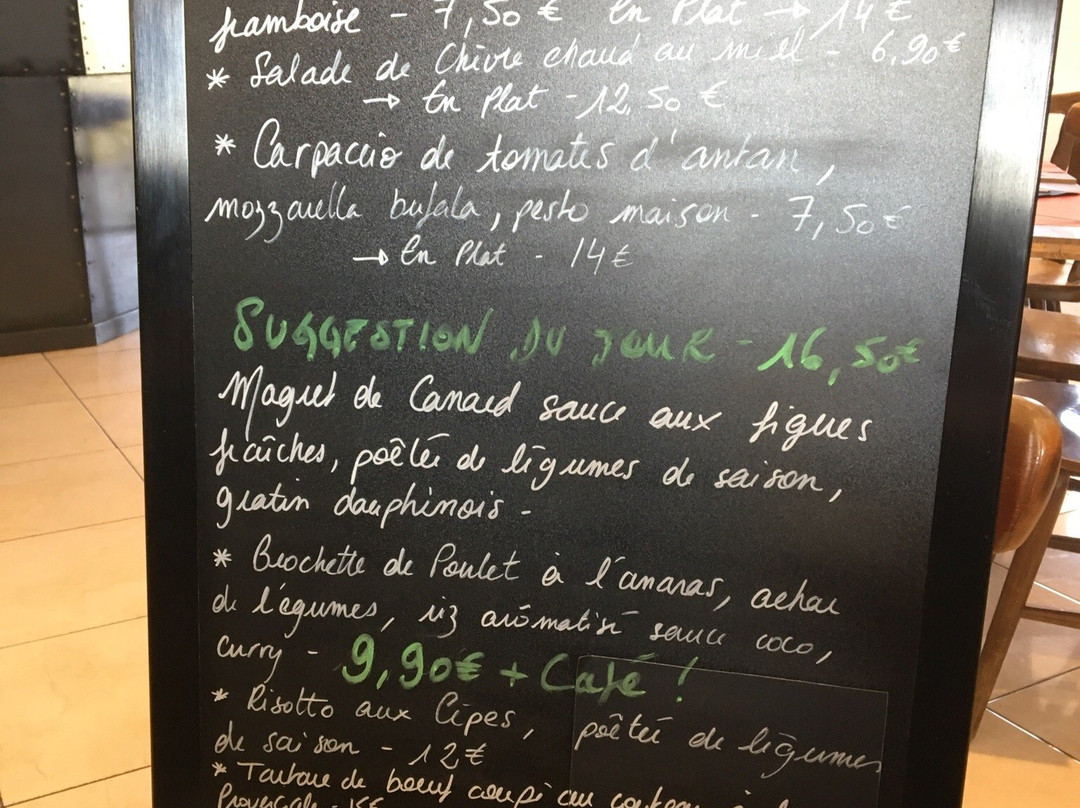 framboise - 7,50 € En Plat → 14 €
* Salade de Chèvre chaud au miel - 6,90 €
→ En Plat - 12,50 €
* Carpaccio de tomates d'antan,
mozzarella bufala, pesto maison - 7,50 €
→ En Plat - 14 €
SUGGESTION DU JOUR - 16,50€
Magret de Canard sauce aux figues
fraîches, poêlée de légumes de saison,
gratin dauphinois -
* Brochette de Poulet à l'ananas, achar
de légumes, riz aromatisé sauce coco,
curry - 9,90€ + Café !
* Risotto aux Cèpes, poêlée de légumes
de saison - 12 €
* Tartare de boeuf coupé au couteau à la
Provençale - 15€